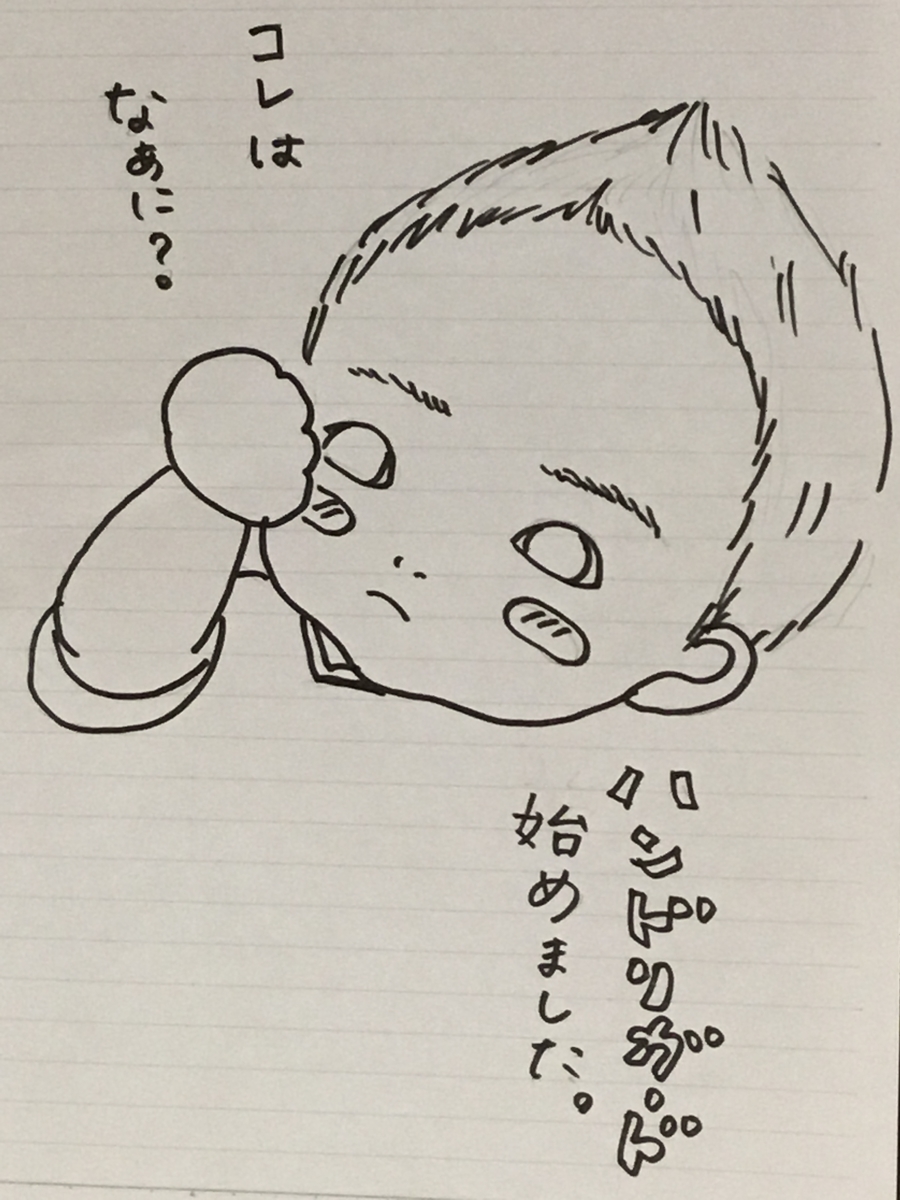 コレは
なぁに?。
ハンドリガード
始めました。